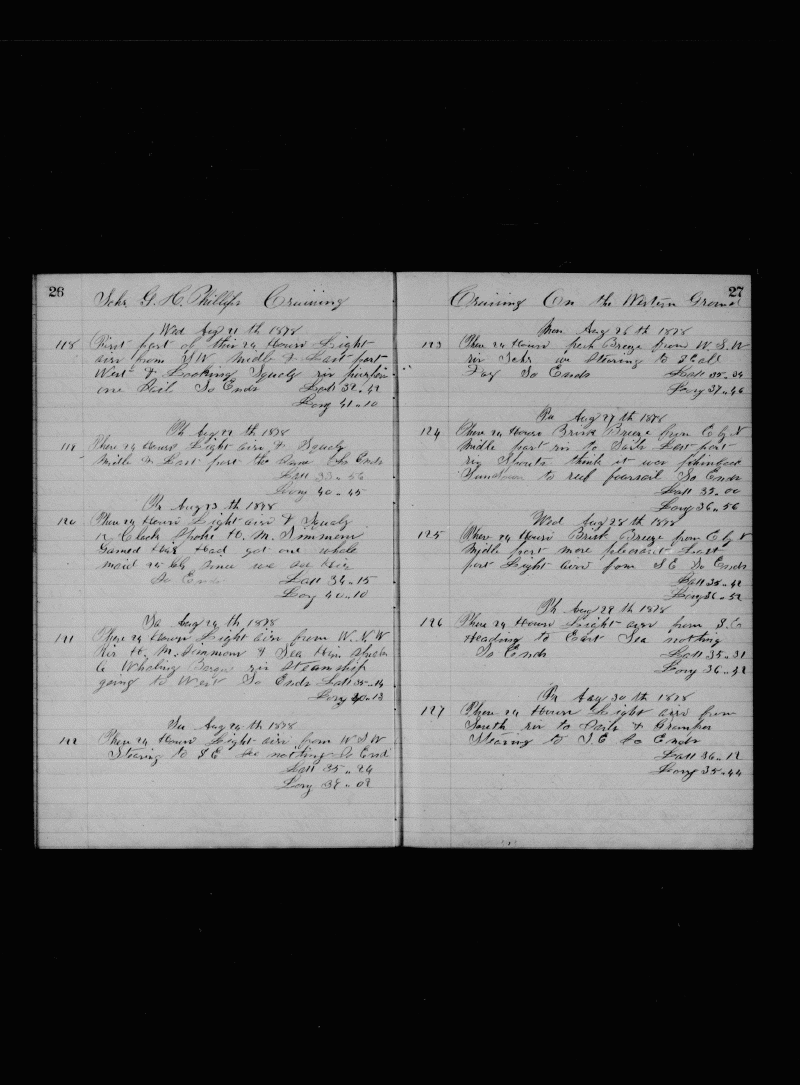 26
Schr G. H. Phillips Cruising
Wed Aug 21 th 1878
118 First part of this 24 Hours Light
airs from SW Midle & Last part
West & Looking Squaly
one Sail So Ends Latt 32 "
Long 41 " 10
Th Aug 22 th 1878
119 These 24 Hours Light airs & Squaly
Midle & Last part the Same So Ends
Latt 33 " 56
Long 40 " 45
Fr Aug 23 th 1878
120 These 24 Hours Light airs & Squaly
12 Clock Spoke H. M. Simmons
Gamed Had got one whale
maid 20 bls Since we see him
So Ends Latt 34 " 15
Long 40 " 10
Sa Aug 24 th 1878
121 These 24 Hours Light airs from W. N. W
H. M. Simmons & Sea Him Speak
a Whaling Barque Steamship
going to West So Ends Latt 35 " 14
Long 40 " 13
Su Aug 25 th 1878
122 These 24 Hours Light airs from W S W
Stearing to S E See nothing So End
Latt 35 " 24
Long 39 " 02
27
Cruising On the Western Ground
Mon Aug 26 th 1878
123 These 24 Hours fresh Breeze from W. S. W
Stearing to
So Ends Latt 35 " 34
Long 37 " 46
Tu Aug 27 th 1878
124 These 24 Hours Brisk Breeze from E by N
Midle part to Sails Last part
Spouts think it was finback
Sundown to reef foursail So Ends
Latt 35 " 00
Long 36 " 56
Wed Aug 28 th 1878
125 These 24 Hours Brisk Breeze from E by N
Midle part more pleasant Last
part Light airs from S E So Ends
Latt 35 " 42
Long 36 " 52
Th Aug 29 th 1878
126 These 24 Hours Light airs from S. E
Heading to East Sea nothing
So Ends Latt 35 " 31
Long 36 " 32
Fr Aug 30 th 1878
127 These 24 Hours Light airs from
South to Sails & Grampus
Stearing to S. E So Ends
Latt 36 " 12
Long 35 " 44